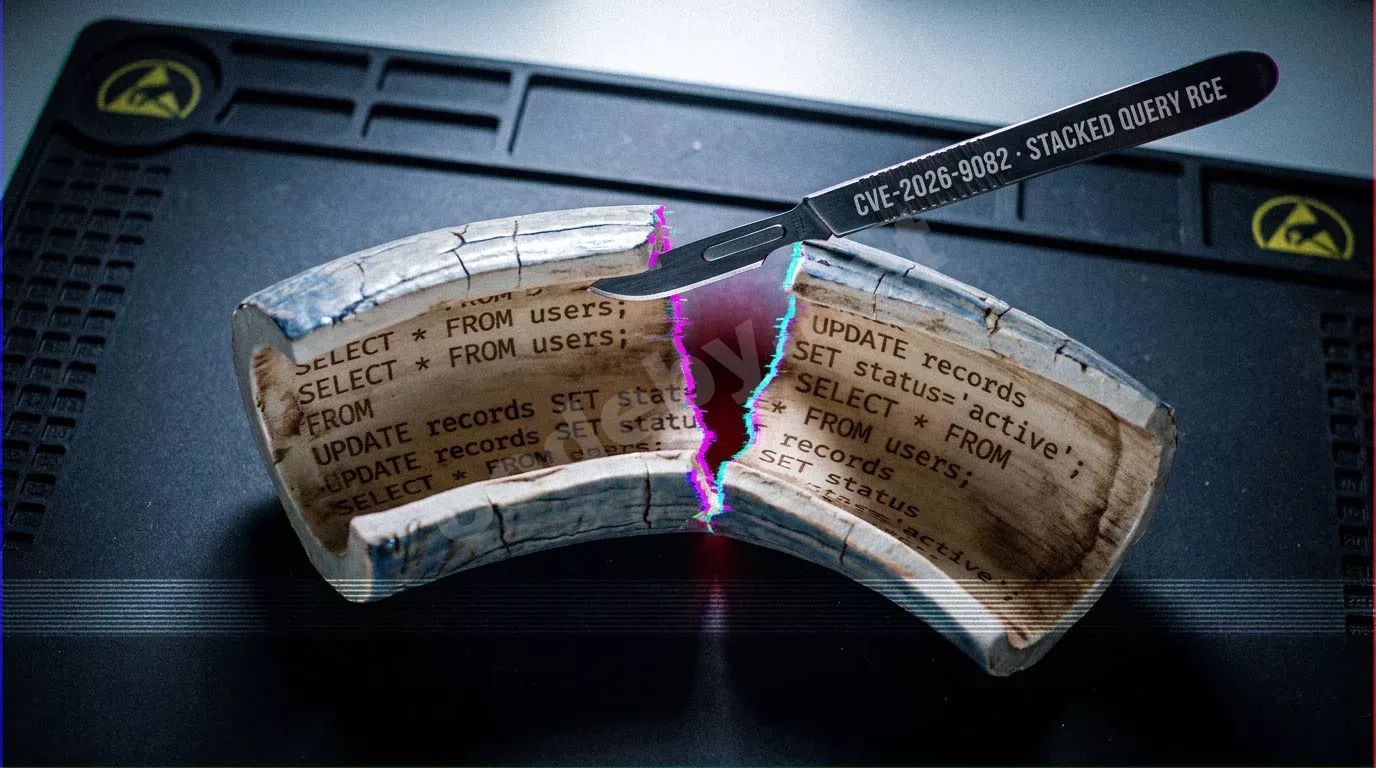 CVE-2026-9082 · STACKED QUERY RCE
SELECT * FROM users;
SELECT * FROM users;
FROM
UPDATE records SET stat
UPDATE records SET statu
SELECT * FROM users;
UPDATE records
SET status='active';
SELECT * FROM
* FROM users;
records
SET status
='active';